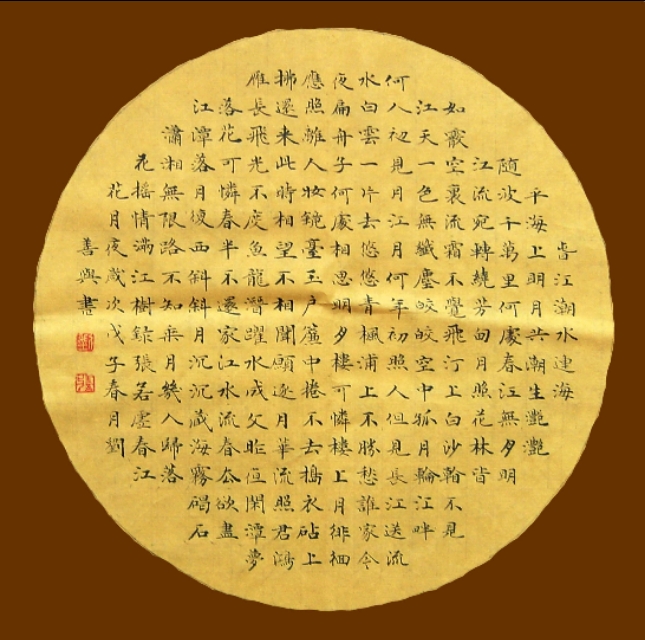 旹江潮水連海
平海上明月共潮生灧灧
随波千萬里何處春江無月明
江流宛轉繞芳甸月照花林皆
如霰空裏流霜不覺飛汀上白沙看不見
江天一色無纖塵皎皎空中孤月輪江畔
何人初見月江月何年初照人但見長江送流
水白雲一片去悠悠青楓浦上不勝愁誰家今
夜扁舟子何處相思明月樓可憐樓上月徘徊
應照離人妝鏡臺玉户簾中捲不去搗衣砧上
拂還來此時相望不相聞願逐月華流照君鴻
雁長飛光不度魚龍潛躍水成文昨夜閑潭夢
落花可憐春半不還家江水流春去欲盡
江潭落月復西斜斜月沉沉藏海霧碣石
瀟湘無限路不知乘月幾人歸落
花摇情滿江樹録張若虛春江
花月夜歲次戊子春月劉
善興書